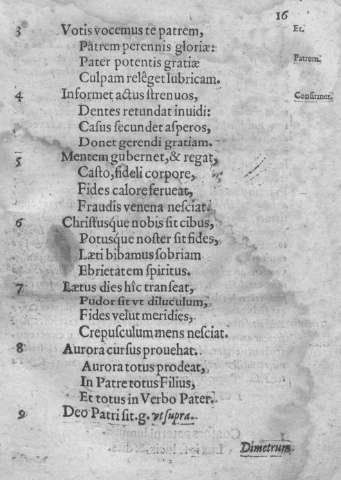 16
3 Votis vocemus te patrem, Et.
Patrem perennis gloriæ:
Pater potentis gratiæ Patrem.
Culpam religet lubricam.
4 Informet actus strenuos, Confirmet.
Dentes retundat inuidi:
Casus secundet asperos,
Donet gerendi gratiam.
5 Mentem gubernet, & regat,
Casto, fideli corpore,
Fides calore ferueat,
Fraudis venena nesciat.
6 Christusque nobis sit cibus,
Potusque noster sit fides,
Læti bibamus sobriam
Ebrietatem spiritus.
7 Lætus dies hîc transeat,
Pudor sit vt diluculum,
Fides velut meridies,
Crepusculum mens nesciat.
8 Aurora cursus prouehat.
Aurora totus prodeat,
In Patre totus Filius,
Et totus in Verbo Pater.
9 Deo Patri sit.g. vt supra.
Dimetrum